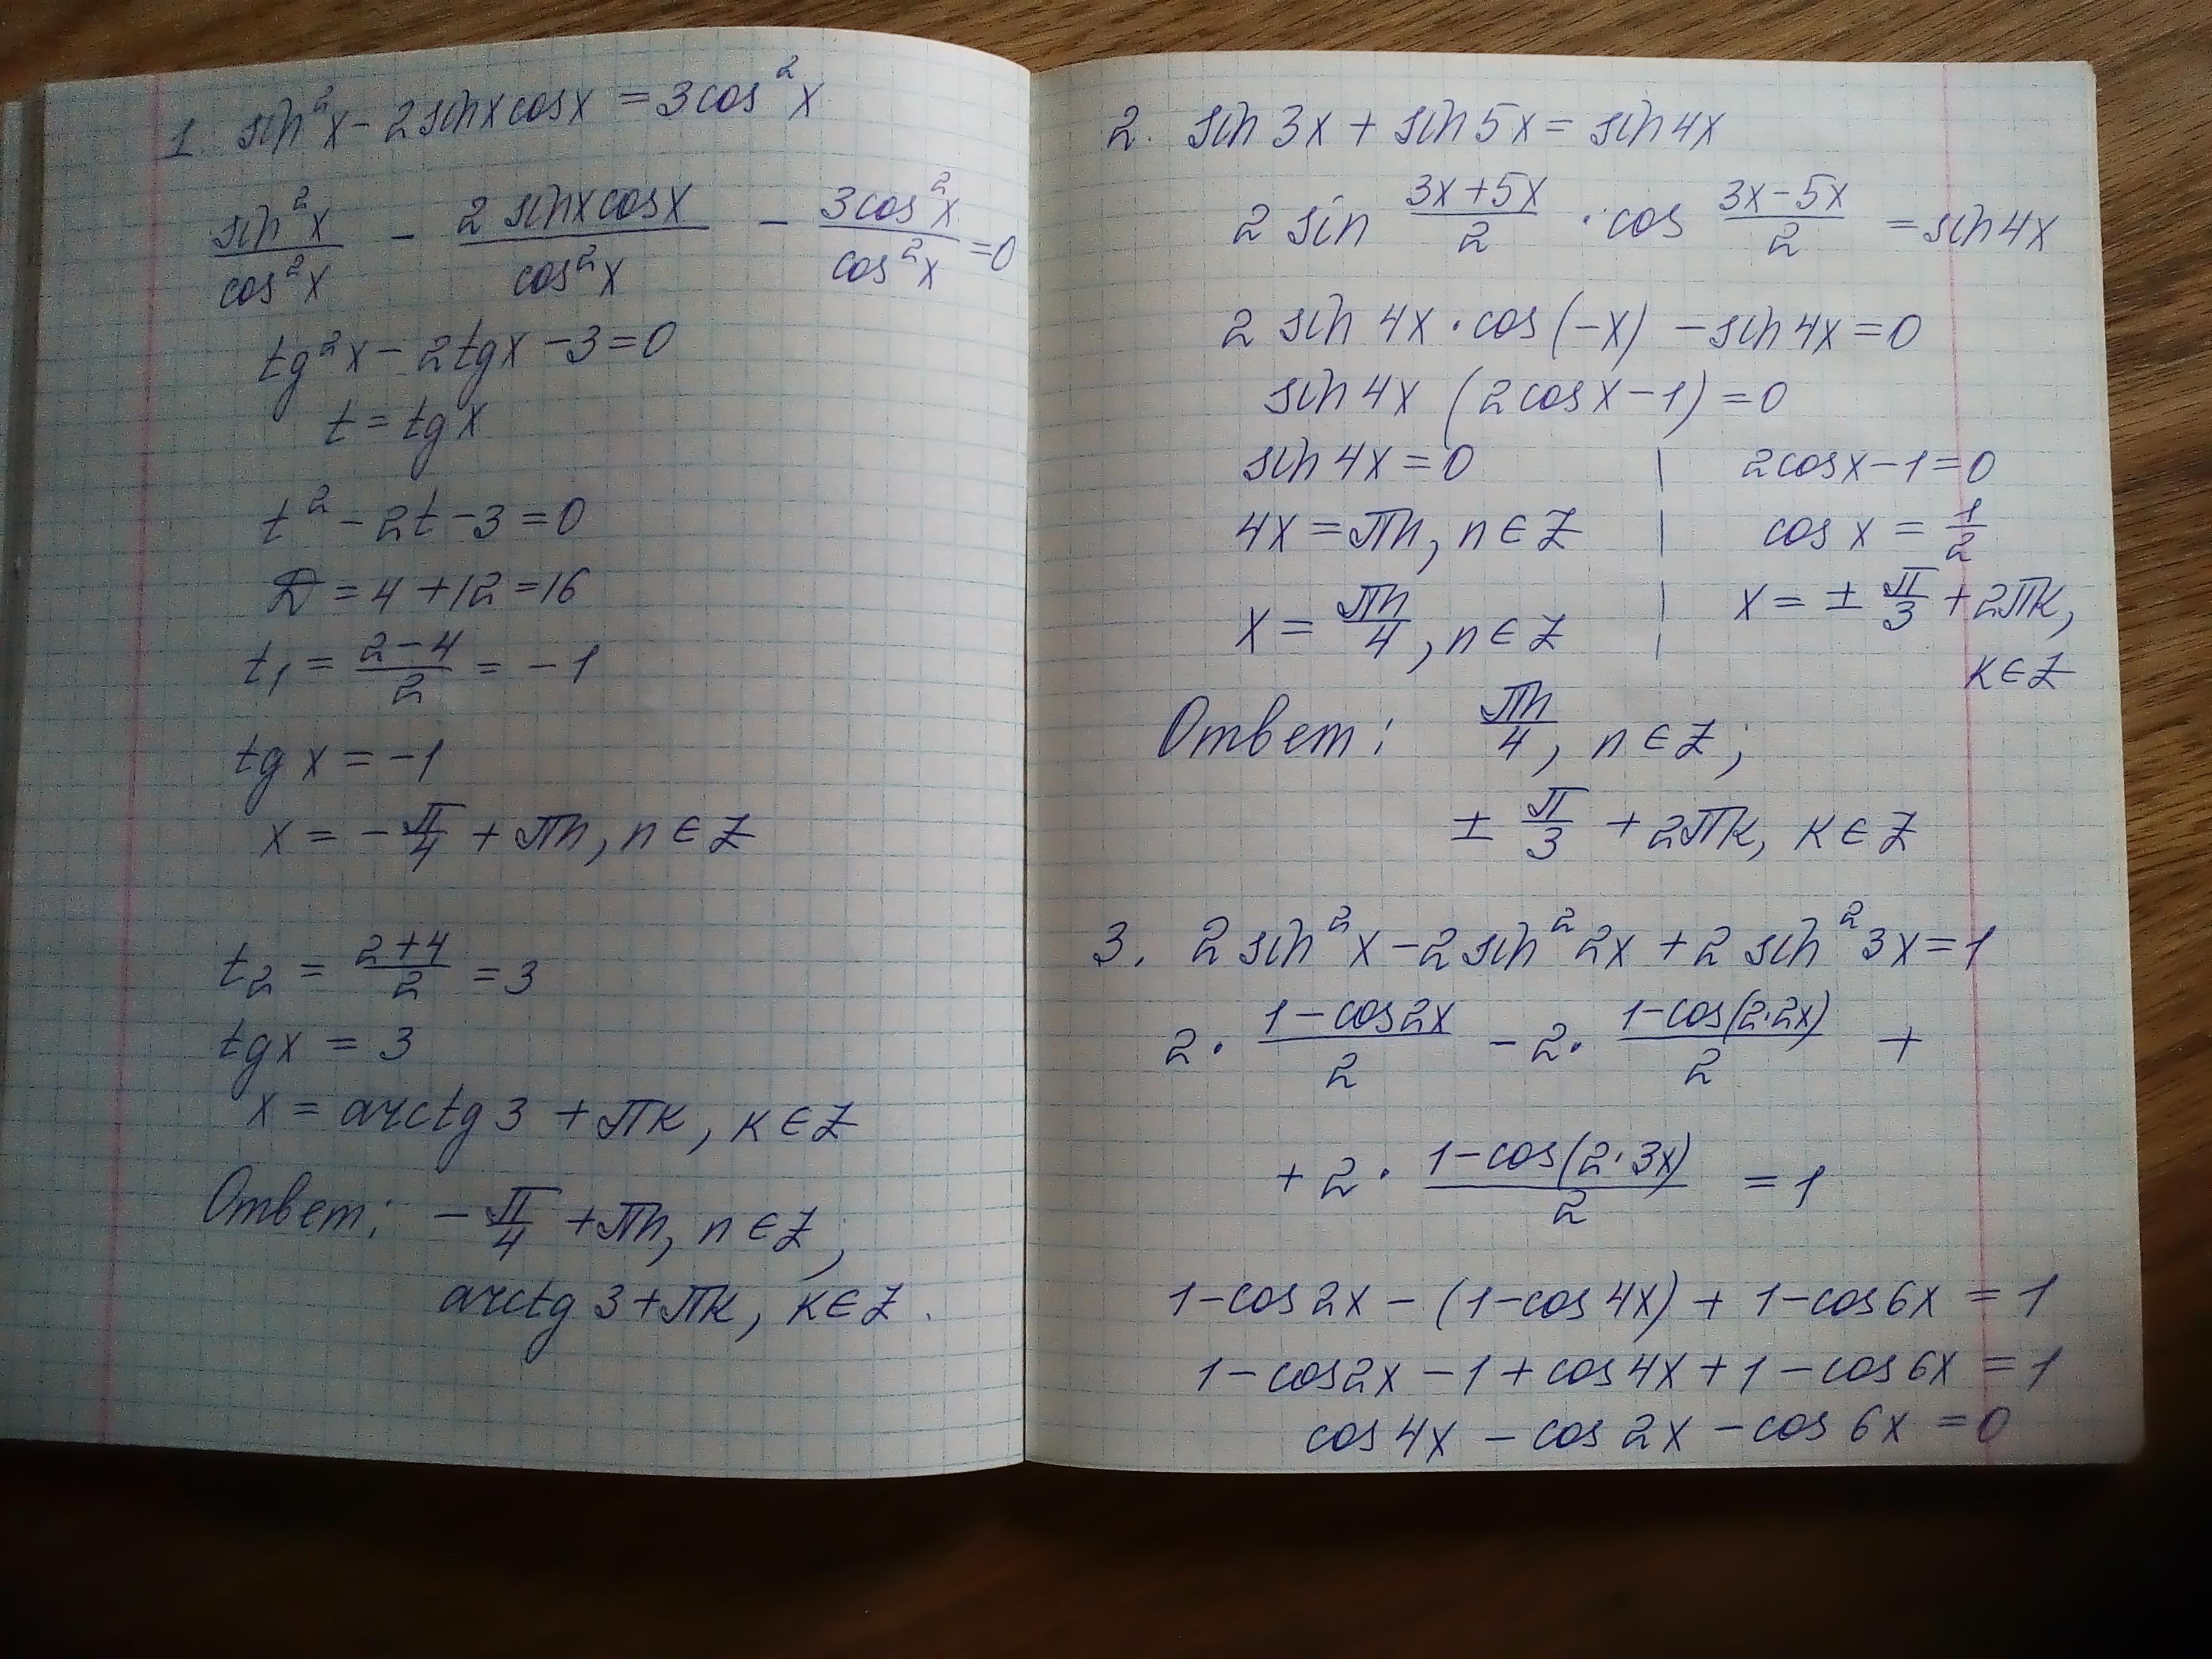 1. sin²x - 2sinxcosx = 3cos²x
sin²x/cos²x - 2sinxcosx/cos²x - 3cos²x/cos²x = 0
tg²x - 2tgx - 3 = 0
t = tgx
t² - 2t - 3 = 0
D = 4 + 12 = 16
t₁ = (2-4)/2 = -1
tg x = -1
x = -π/4 + πn, n ∈ Z
t₂ = (2+4)/2 = 3
tgx = 3
x = arctg 3 + πк, к ∈ Z
Ответ: -π/4 + πn, n ∈ Z;
arctg 3 + πк, к ∈ Z.
2. sin 3x + sin 5x = sin 4x
2 sin (3x+5x)/2 · cos (3x-5x)/2 = sin 4x
2 sin 4x · cos(-x) - sin 4x = 0
sin 4x (2cosx - 1) = 0
sin 4x = 0 | 2cosx - 1 = 0
4x = πn, n ∈ Z | cos x = 1/2
x = πn/4, n ∈ Z | x = ± π/3 + 2πк,
к ∈ Z
Ответ: πn/4, n ∈ Z;
± π/3 + 2πк, к ∈ Z
3. 2 sin²x - 2 sin²2x + 2 sin²3x = 1
2 · (1-cos2x)/2 - 2 · (1-cos(2·2x))/2 +
+ 2 · (1-cos(2·3x))/2 = 1
1-cos 2x - (1-cos 4x) + 1-cos 6x = 1
1-cos2x - 1 + cos 4x + 1 - cos 6x = 1
cos 4x - cos 2x - cos 6x = 0